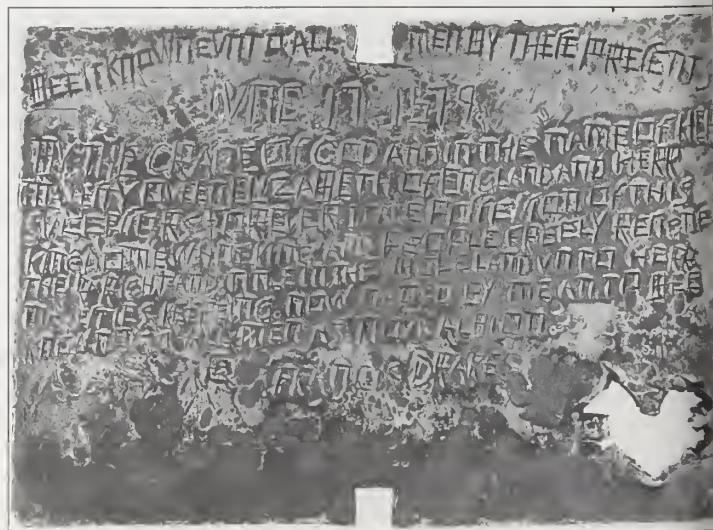 BEE IT KNOWNE VNTO ALL MEN BY THESE PRESENTS
IVNE 17 1579
BY THE GRACE OF GOD AND IN THE NAME OF HERR
MAIESTY QVEEN ELIZABETH OF ENGLAND AND HERR
SVCCESSORS FOREVER I TAKE POSSESSION OF THIS
KINGDOME WHOSE KING AND PEOPLE FREELY RESIGNE
THEIR RIGHT AND TITLE IN THE WHOLE LAND VNTO HERR
MAIESTIES KEEPEING NOW NAMED BY ME AN TO BEE
KNOWNE VNTO ALL MEN AS NOVA ALBION
G FRANCIS DRAKE